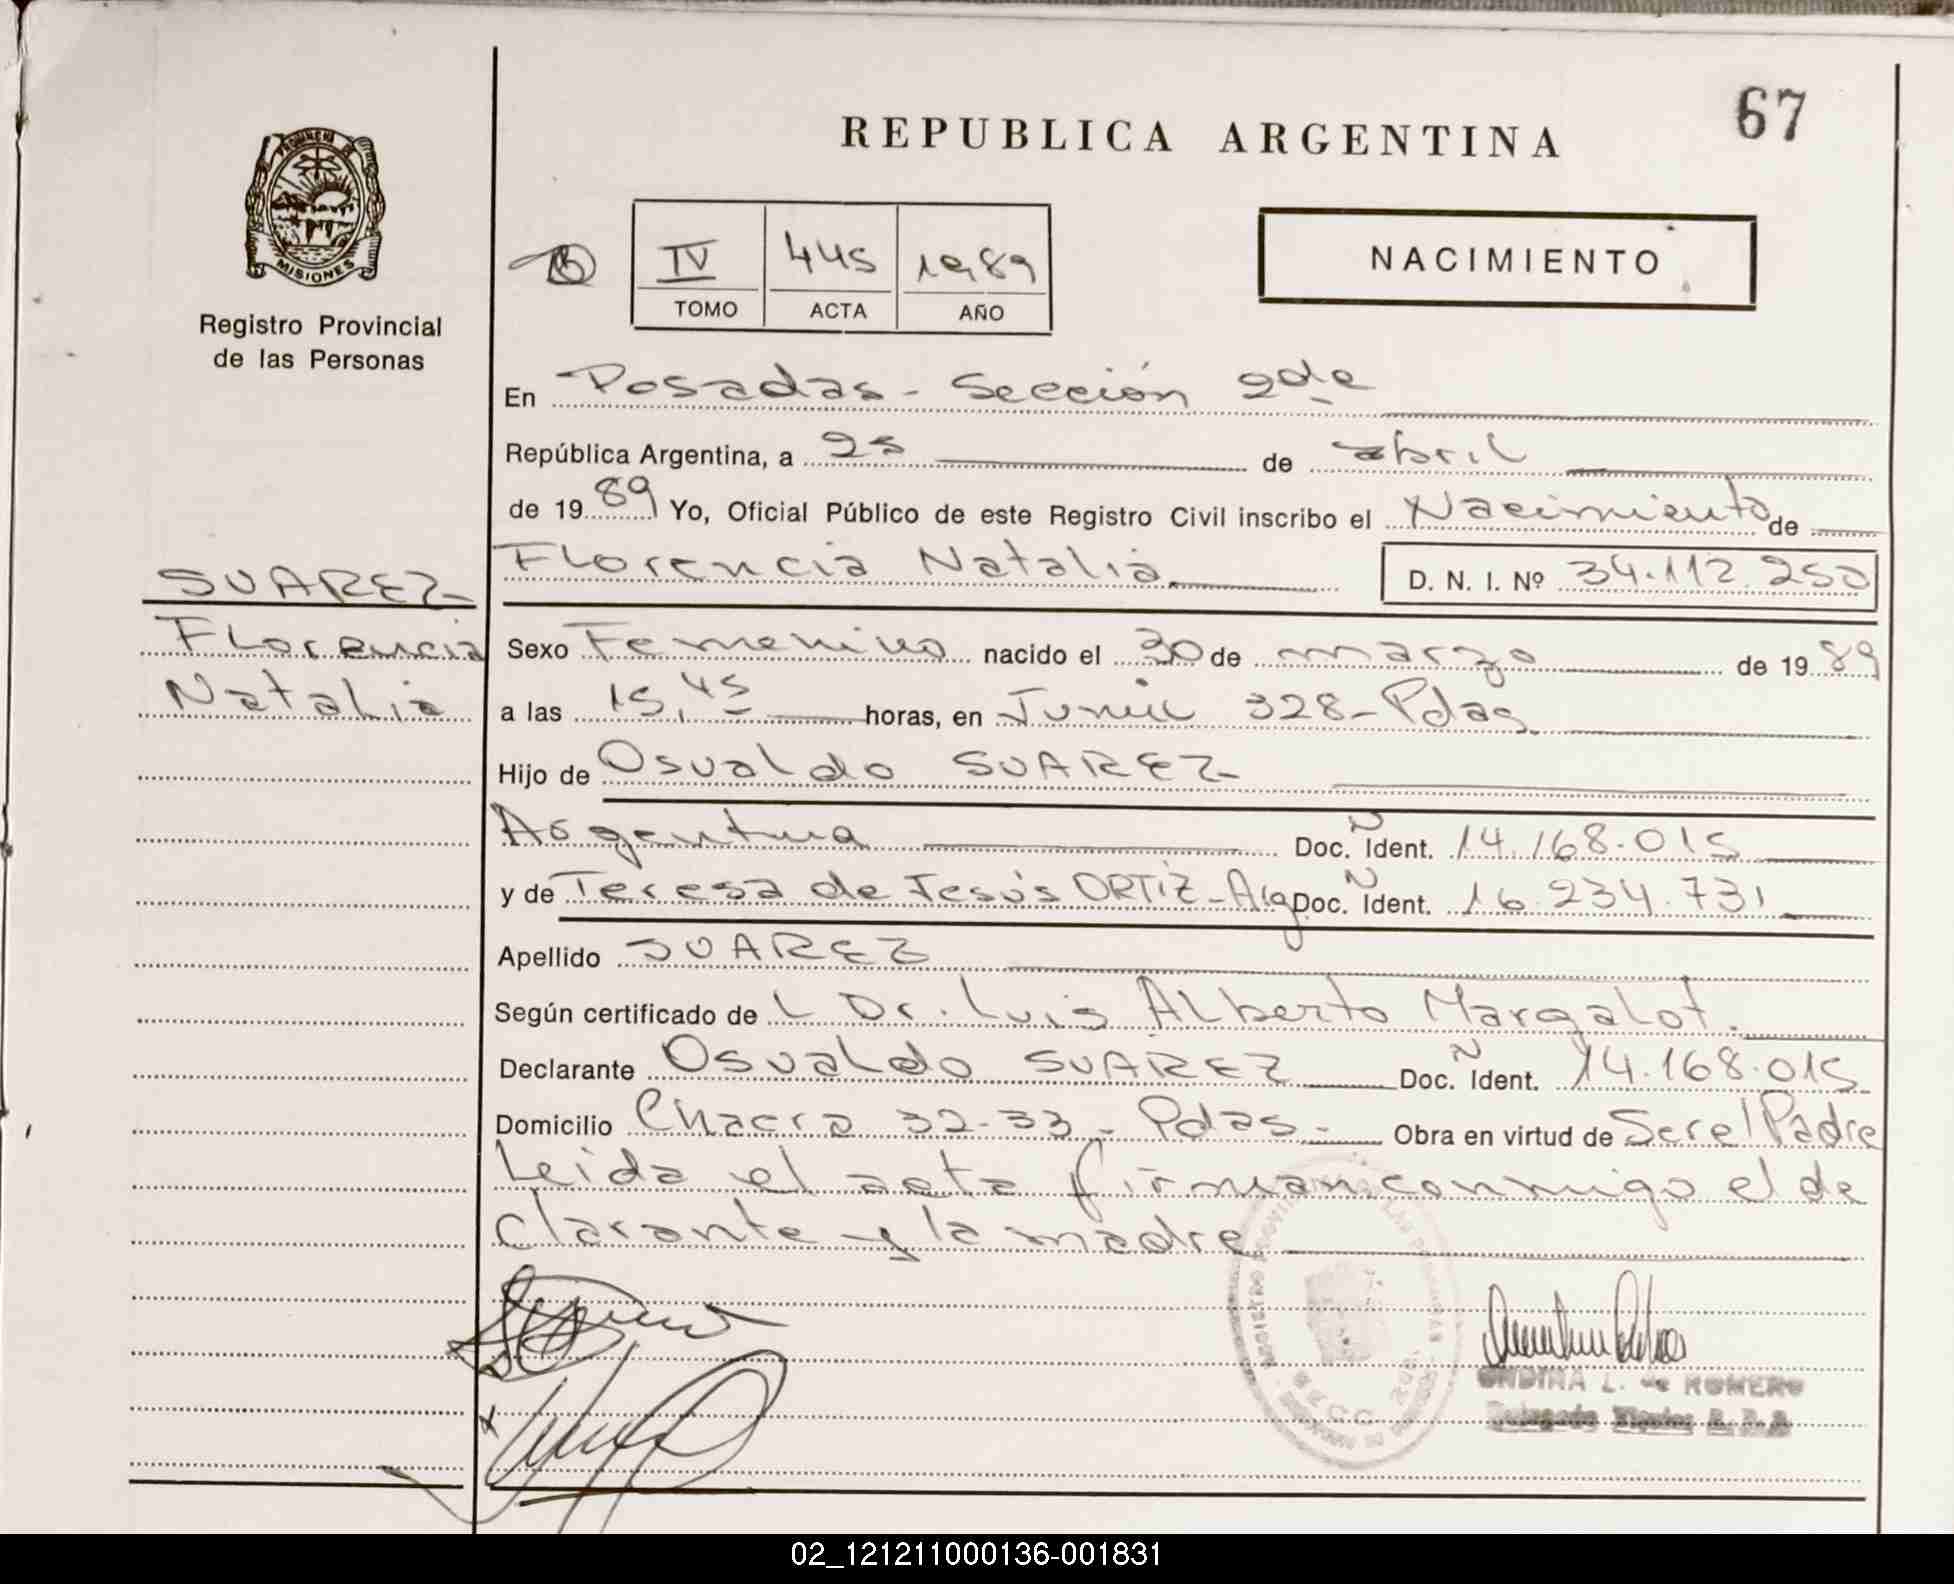 67
REPUBLICA ARGENTINA
PROVINCIA DE
MISIONES
Registro Provincial
de las Personas
IV 445 1989
TOMO ACTA AÑO
NACIMIENTO
En Posadas - Sección 2da
República Argentina, a 25 de abril
de 1989 Yo, Oficial Público de este Registro Civil inscribo el Nacimiento de
Florencia Natalia D. N. I. Nº 34.112.250
SUAREZ
Florencia
Natalia
Sexo Femenino nacido el 30 de marzo de 1989
a las 15,45 horas, en Junín 328 - Pdas
Hijo de Osvaldo SUAREZ
Argentina Doc. Ñ Ident. 14.168.015
y de Teresa de Jesús ORTIZ - Arg Doc. Ñ Ident. 16.234.731
Apellido SUAREZ
Según certificado de L Dr. Luis Alberto Margalot.
Declarante Osvaldo SUAREZ Doc. Ñ Ident. 14.168.015
Domicilio Chacra 32-33 - Pdas - Obra en virtud de Ser el Padre
Leida el acta firman conmigo el de
clarante y la madre
ONDINA L. de ROMERO
02_121211000136-001831